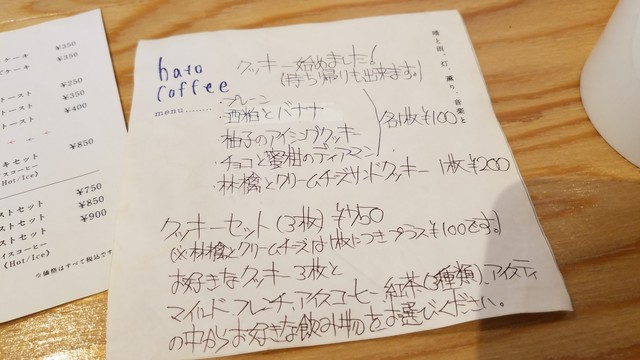 hato
coffee
menu........
クッキー始めました!
(持ち帰りも出来ます。)
・プレーン
・酒粕とバナナ
・柚子のアイシングクッキー
・チョコと蜜柑のディアマン
各1枚¥100
・林檎とクリームチーズサンドクッキー 1枚¥200
クッキーセット(3枚) ¥750
(※林檎とクリームチーズは1枚につきプラス¥100です。)
お好きなクッキー3枚と
マイルド、フレンチ、アイスコーヒー、紅茶(3種類)、アイスティ
の中からお好きな飲み物をお選びください。
晴と雨、灯、薫り、音楽と
ケーキ ¥350
ケーキ ¥350
トースト ¥250
トースト ¥350
トースト ¥400
キセット ¥850
スコーヒー
(Hot/Ice)
ストセット ¥750
ストセット ¥850
ストセット ¥900
イスコーヒー
(Hot/Ice)
※価格はすべて税込です